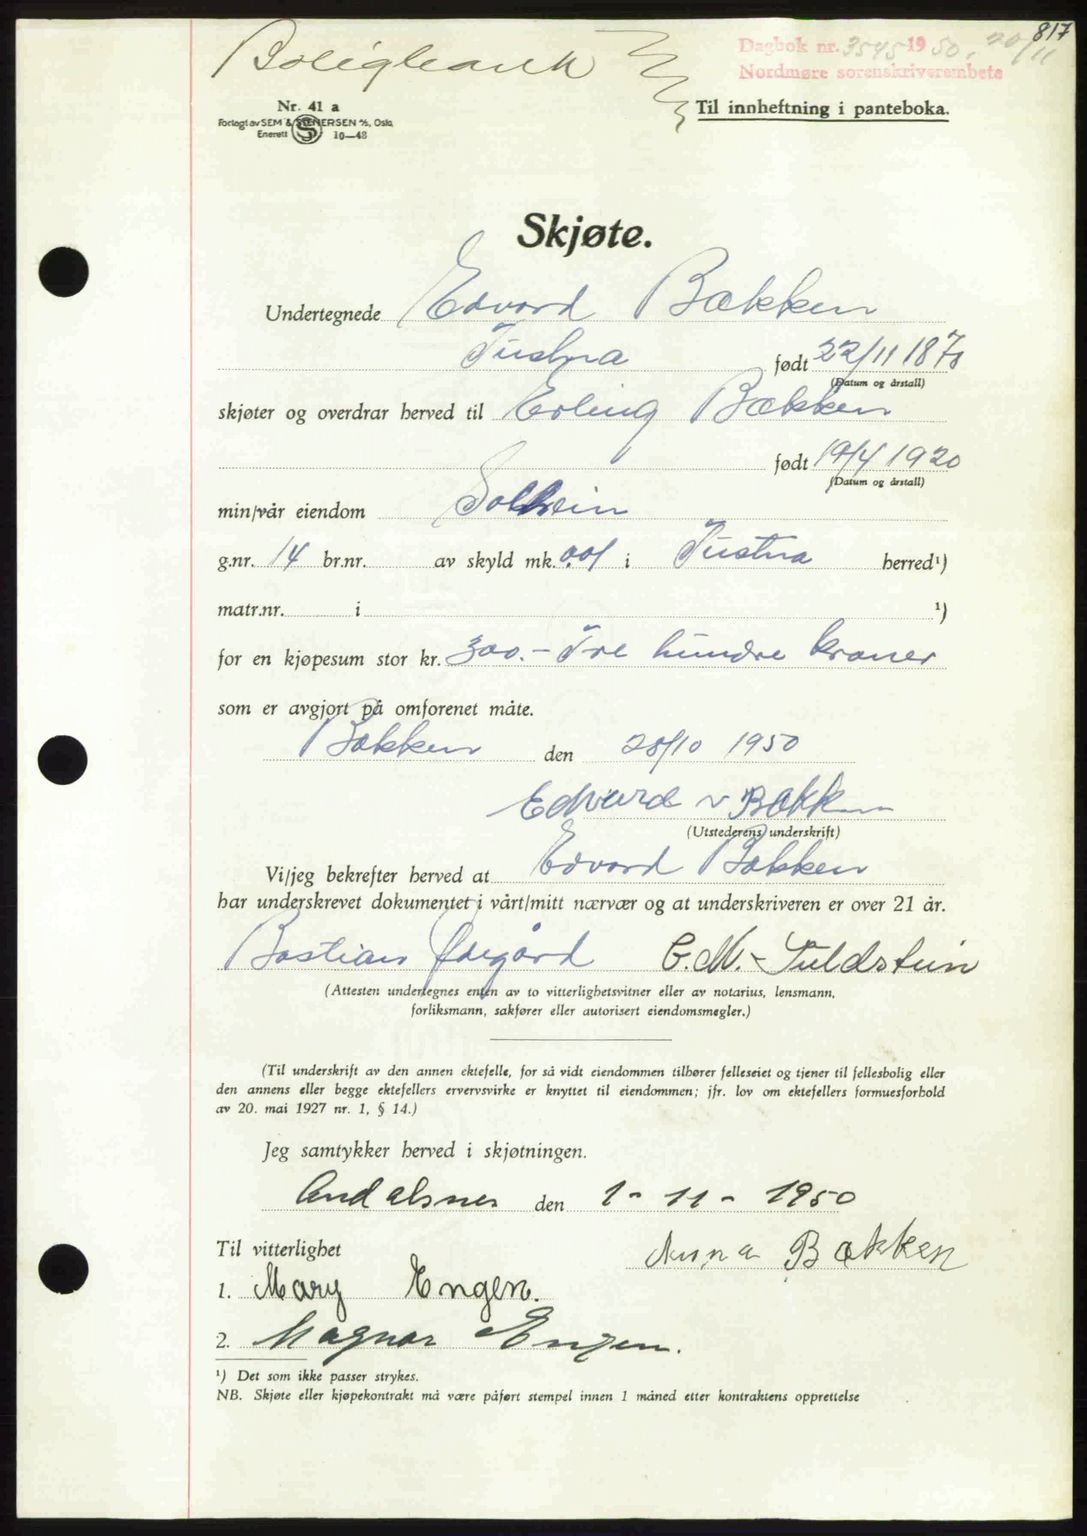 817
Boligbank
Dagbok nr. 3545 1950. 20/11
Nordmøre sorenskriverembete
Nr. 41 a
Forlagt av SEM & STENERSEN A/S, Oslo
Enerett S 10—48
Til innheftning i panteboka.
Skjøte.
Undertegnede Edvard Bækken
Tustna født 22/11 1870
(Datum og årstall)
skjøter og overdrar herved til Erling Bækken
født 19/4 1920
(Datum og årstall)
min/vår eiendom
g.nr. 14 br.nr. av skyld mk. 0.01 i Tustna herred¹)
matr.nr. i ¹)
for en kjøpesum stor kr. 300.- Tre hundre kroner
som er avgjort på omforenet måte.
Bækken den 28/10 1950
Edvard Bækken
(Utstederens underskrift)
Vi/jeg bekrefter herved at Edvard Bækken
har underskrevet dokumentet i vårt/mitt nærvær og at underskriveren er over 21 år.
Bastian Ødegård C. M. Suldstein
(Attesten undertegnes enten av to vitterlighetsvitner eller av notarius, lensmann,
forliksmann, sakfører eller autorisert eiendomsmegler.)
(Til underskrift av den annen ektefelle, for så vidt eiendommen tilhører felleseiet og tjener til fellesbolig eller
den annens eller begge ektefellers ervervsvirke er knyttet til eiendommen; jfr. lov om ektefellers formuesforhold
av 20. mai 1927 nr. 1, § 14.)
Jeg samtykker herved i skjøtningen.
Andalsnes den 1-11-1950
Til vitterlighet Anna Bækken
1. Mary Engen.
2. Magnar Engen.
¹) Det som ikke passer strykes.
NB. Skjøte eller kjøpekontrakt må være påført stempel innen 1 måned etter kontraktens opprettelse